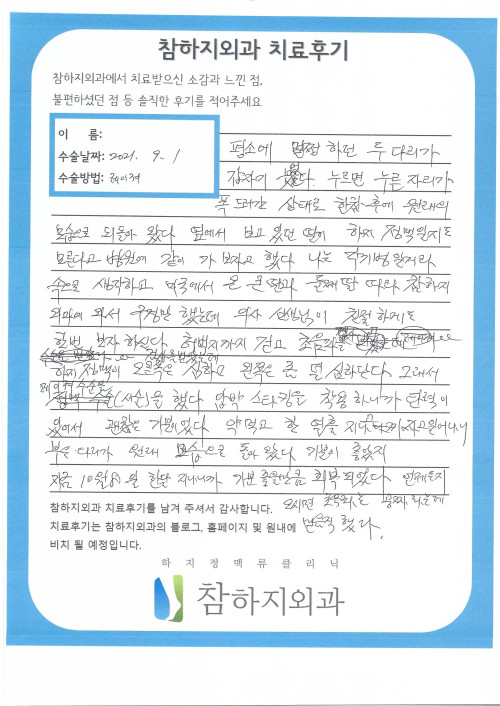 참하지외과 치료후기
참하지외과에서 치료받으신 소감과 느낀 점,
불편하셨던 점 등 솔직한 후기를 적어주세요
이 름:
수술날짜: 2021. 9. 1
수술방법: 레이저
평소에 멀쩡 하던 두 다리가
갑자기 부었다. 누르면 누른 자리가
푹 들어간 상태로 한참 후에 원래의
모습으로 되돌아 왔다 옆에서 보고 있던 딸이 하지 정맥일지도
모른다고 병원에 같이 가 보자고 했다 나는 각기병일거라
속으로 생각하고 미국에서 온 큰딸과 둘째딸 따라 참하지
외과에 와서 걱정만 했는데 의사 선생님이 친절하게도
한번 보자 하신다 걷고 초음파를
하지정맥이 오른쪽은 심하고 왼쪽은 좀 덜 심하단다 그래서
레이저 수술을
(시술)을 했다 압박 스타킹을 착용하니까 탄력이
있어서 괜찮은 기분이었다 약먹고 한 열흘 지나
부은 다리가 원래 모습으로 돌아 왔다 기분이 좋았지
지금 10월 8일 한달 지나니까 기분 좋을만큼 회복되었다 언제든지
오시면
참하지외과 치료후기를 남겨 주셔서 감사합니다.
치료후기는 참하지외과의 블로그, 홈페이지 및 원내에
했다.
비치 될 예정입니다.
하지정맥류클리닉
참하지외과